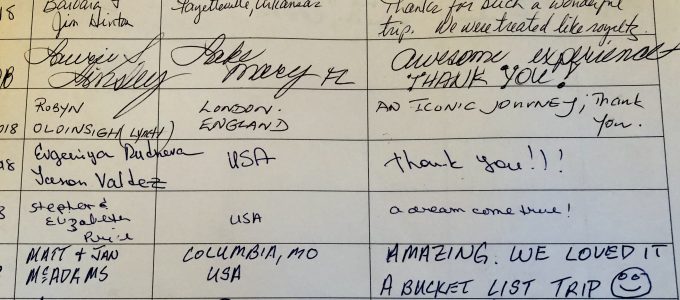 18 Barbara & Fayetteville, Arkansas Thanks for such a wonderful
Jim Hinton trip. We were treated like royalty.
Laurie S. Lake Awesome experience
Linsley Mary FL THANK YOU!
ROBYN LONDON. AN ICONIC JOURNEY, Thank
018 OLDINSIGH (LYNCH) ENGLAND You.
18 Evgeniya Rudneva USA thank you!)!
Jason Valdez
Stephen & a dream come true!
Elizabeth USA
Price
MATT + JAN COLUMBIA, MO AMAZING. WE LOVED IT
McADAMS USA A BUCKET LIST TRIP